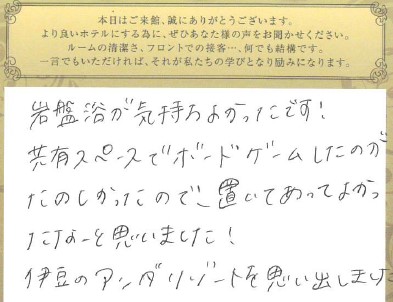 本日はご来館、誠にありがとうございます。
より良いホテルにする為に、ぜひあなた様の声をお聞かせください。
ルームの清潔さ、フロントでの接客…、何でも結構です。
一言でもいただければ、それが私たちの学びとなり励みになります。
岩盤浴が気持ちよかったです！
共有スペースでボードゲームしたのが
たのしかったので、置いてあってよかっ
たなーと思いました！
伊豆のアンダリゾートを思い出しました